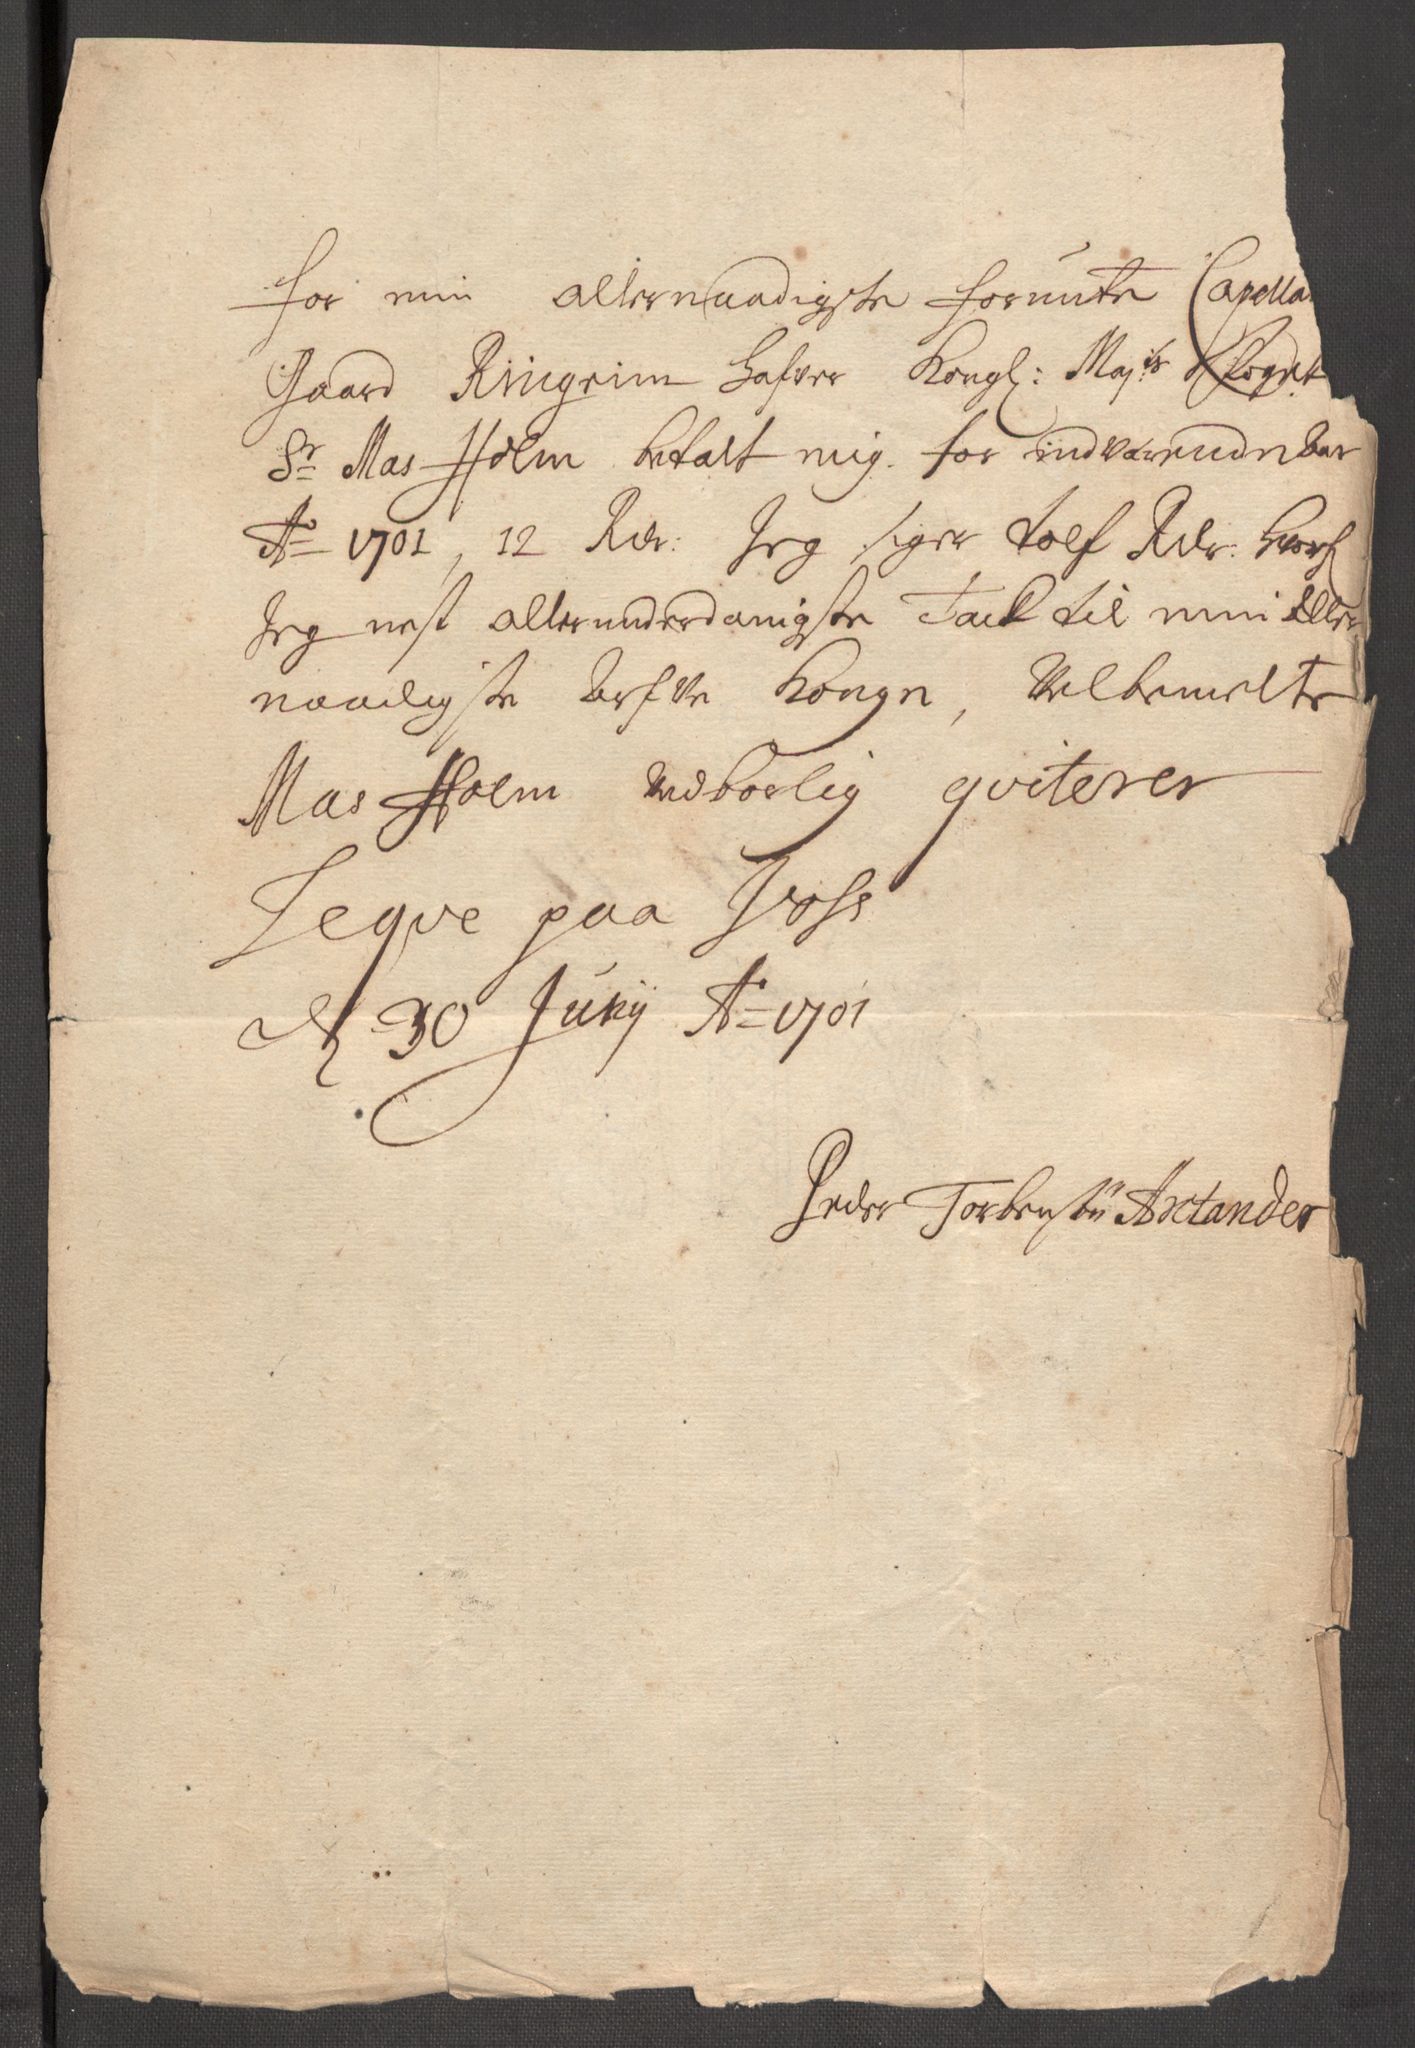 for min allernaadigste forundte Capella
Gaard Ringeim hafver Kongl: Maj:ts Foget
Sr Mas Holm betalt mig for indværende aar
Ao 1701, 12 Rdr: Jeg siger tolf Rdr: hvorf
Jeg nest allerunderdanigste Tack til min Aller
naadigste Arfve Konge, Velbemelte
Mas Holm vedborlig qviterer
Leqve paa Voss
d 30 Junij Ao 1701
Peder Torbensøn Axlander